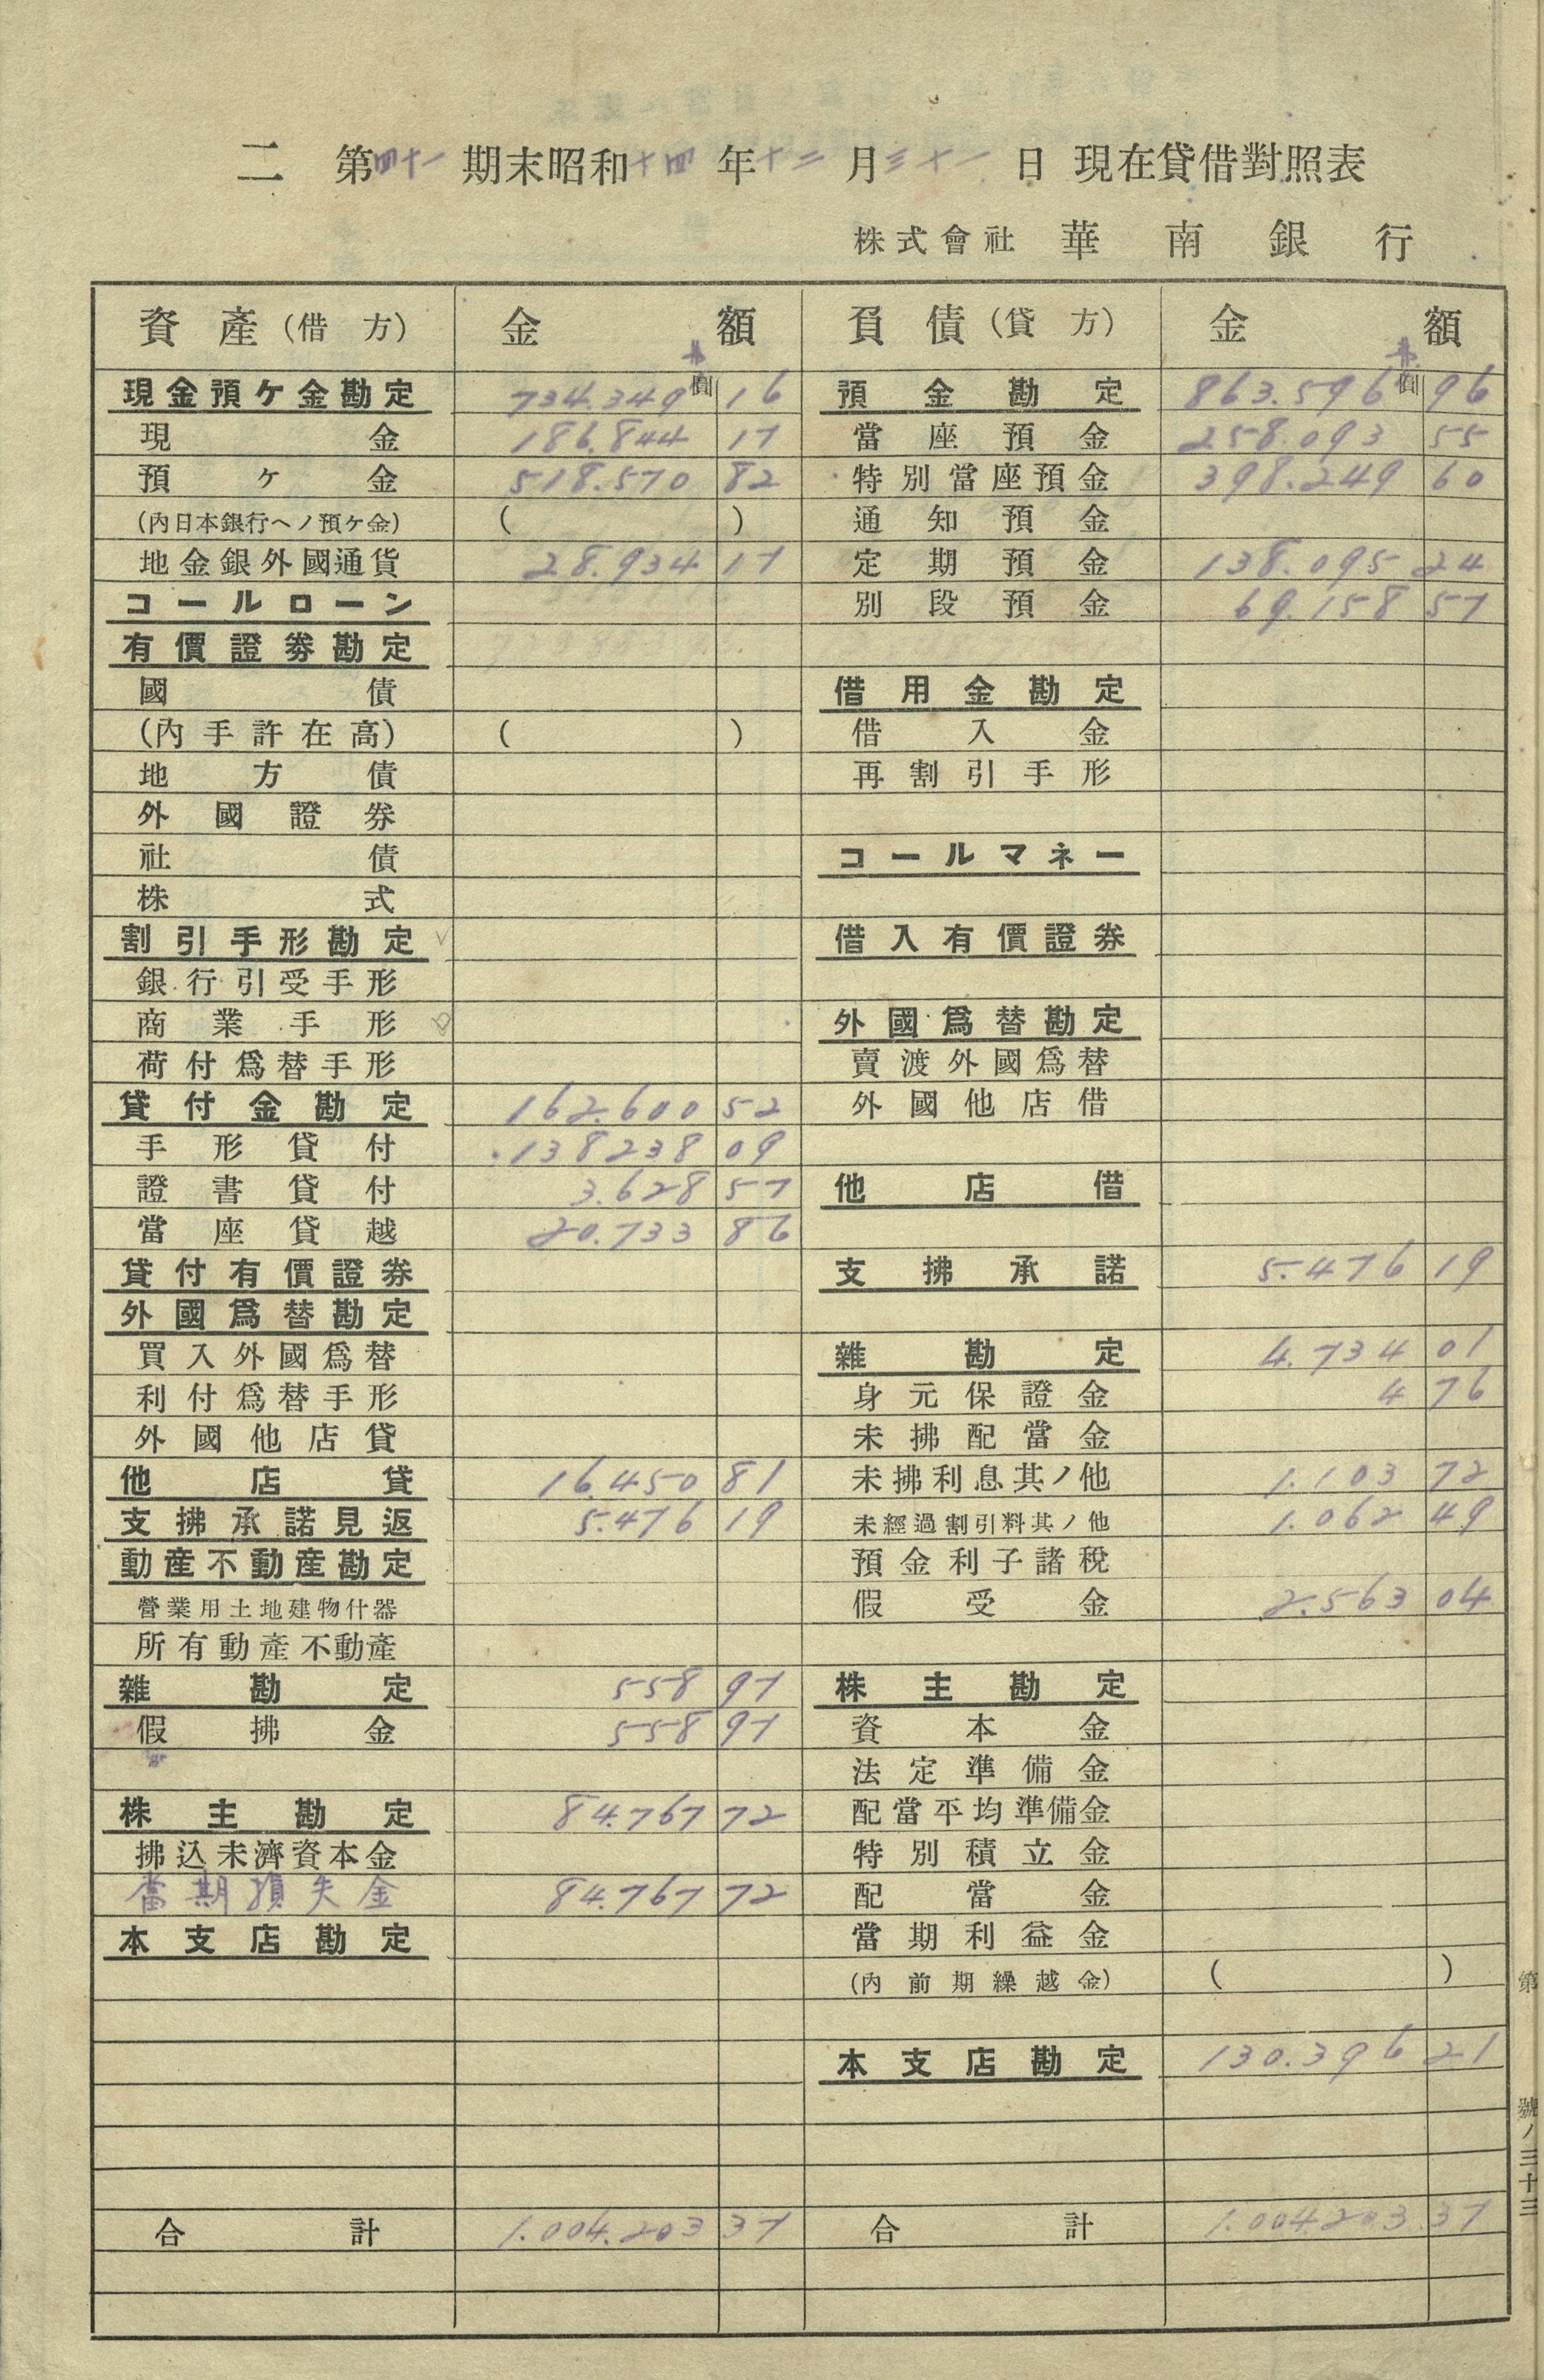 二 第四十一期末昭和十四年十二月三十一日現在貸借對照表
株式會社 華南銀行
資產(借方) 金額 負債(貸方) 金額
現金預ケ金勘定 734.349 16 預金勘定 863.596 96
現金 186.844 17 當座預金 258.093 55
預ケ金 518.570 82 特別當座預金 398.249 60
(內日本銀行ヘノ預ケ金) ( ) 通知預金
地金銀外國通貨 28.934 17 定期預金 138.095 24
コールローン 別段預金 69.158 57
有價證券勘定
國債 借用金勘定
(內手許在高) ( ) 借入金
地方債 再割引手形
外國證券
社債 コールマネー
株式
割引手形勘定 借入有價證券
銀行引受手形
商業手形 外國爲替勘定
荷付爲替手形 賣渡外國爲替
貸付金勘定 162.600 52 外國他店借
手形貸付 138238 09
證書貸付 3.628 57 他店借
當座貸越 20.733 86
貸付有價證券 支拂承諾 5.476 19
外國爲替勘定
買入外國爲替 雜勘定 4.734 01
利付爲替手形 身元保證金 4 76
外國他店貸 未拂配當金
他店貸 16.450 81 未拂利息其ノ他 1.103 72
支拂承諾見返 5.476 19 未經過割引料其ノ他 1.062 49
動產不動產勘定 預金利子諸稅
營業用土地建物什器 假受金 2.563 04
所有動產不動產
雜勘定 558 97 株主勘定
假拂金 558 97 資本金
法定準備金
株主勘定 84.767 72 配當平均準備金
拂込未濟資本金 特別積立金
當期損失金 84.767 72 配當金
本支店勘定 當期利益金
(內前期繰越金) ( )
本支店勘定 130.396 21
合計 1.004.203 37 合計 1.004.203 37
第
號八三十三